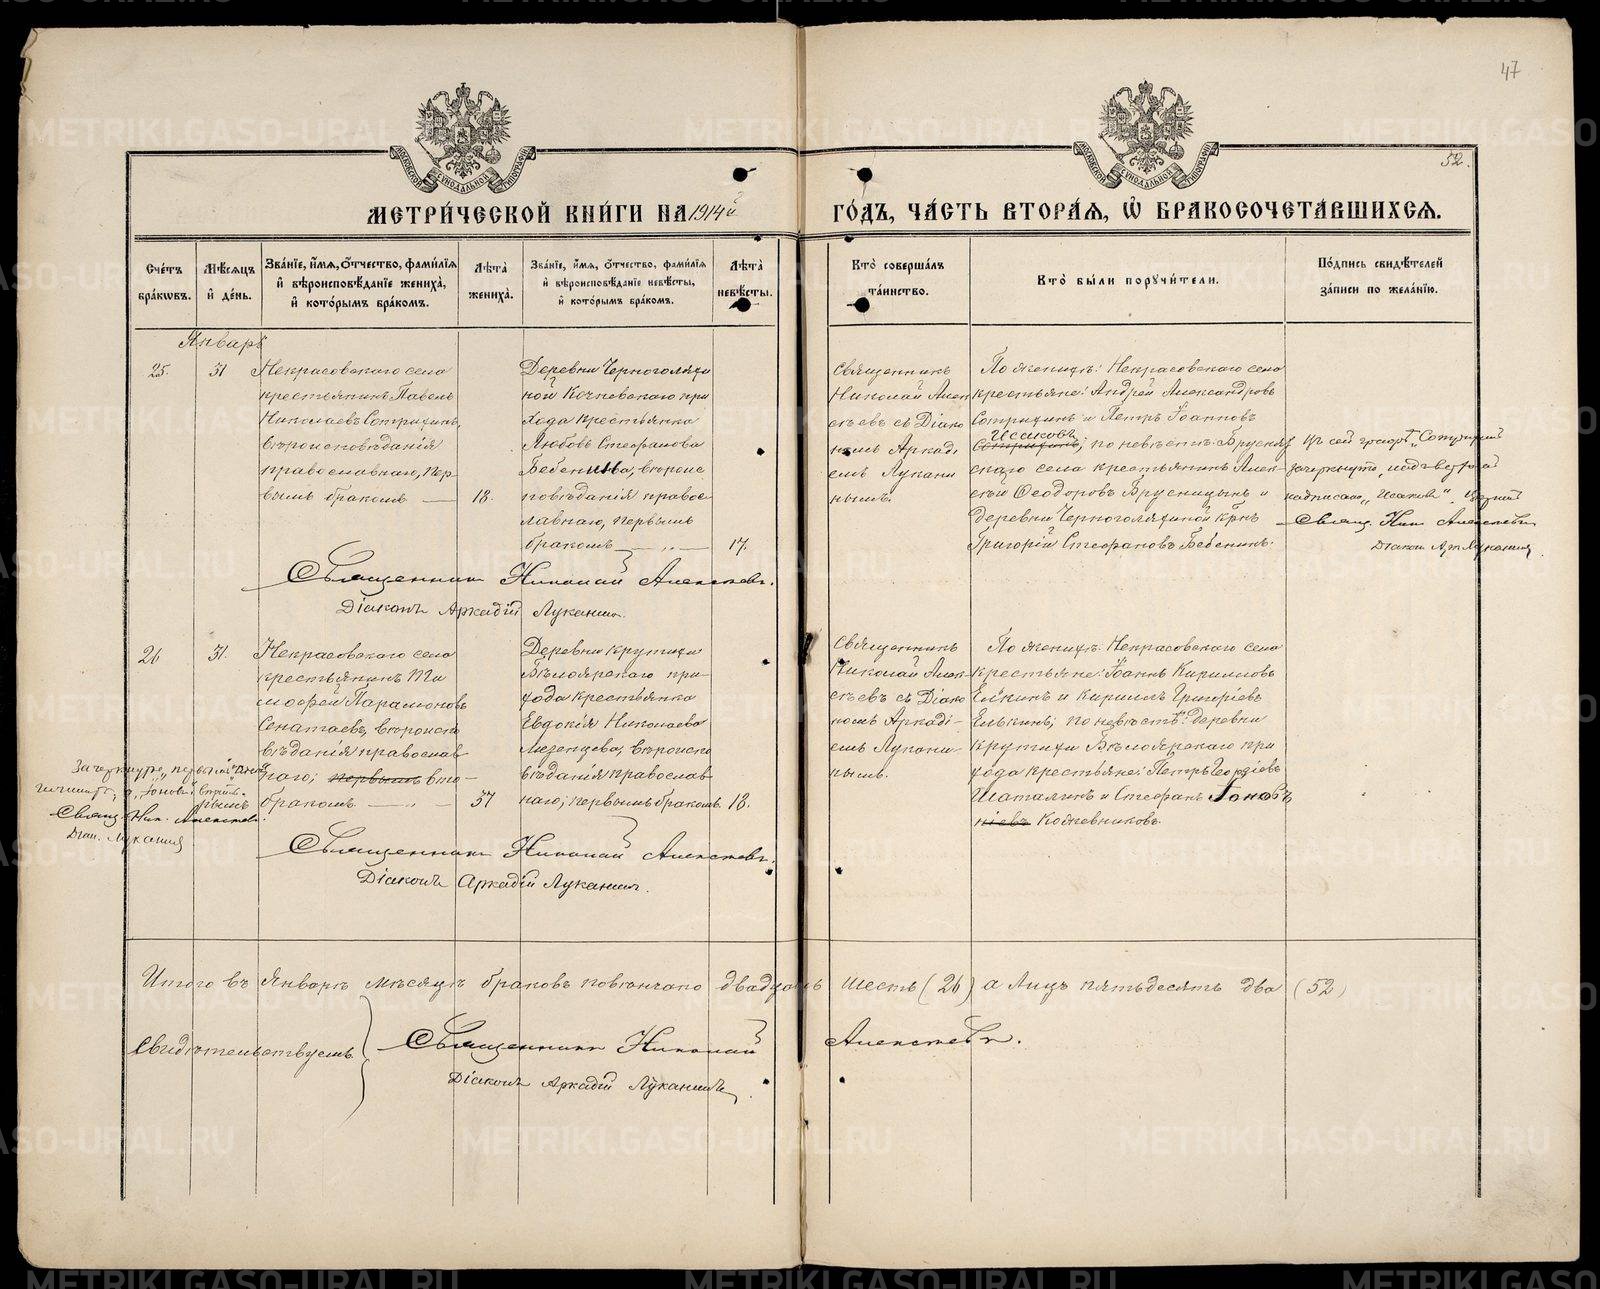 47
52.
МОСКОВСКОЙ СУНОДАЛЬНОЙ ТИПОГРАФІИ
МОСКОВСКОЙ СУНОДАЛЬНОЙ ТИПОГРАФІИ
МЕТРИ́ЧЕСКОЙ КНИ́ГИ НА 1914й
ГО́ДЪ, ЧА́СТЬ ВТОРА́Я, Ѽ БРАКОСОЧЕТА́ВШИХСЯ.
Сче́тъ
бра́кѡвъ.
Мѣ́сяцъ
и҆ де́нь.
Зва́нїе, и҆́мя, ѻ҆́тчество, фами́лїя
и҆ вѣроисповѣ́данїе жениха̀,
и҆ кото́рымъ бра́комъ.
Лѣта̀
жениха̀.
Зва́нїе, и҆́мя, ѻ҆́тчество, фами́лїя
и҆ вѣроисповѣ́данїе невѣ́сты,
и҆ кото́рымъ бра́комъ.
Лѣта̀
невѣ́сты.
Кто̀ соверша́лъ
та́инство.
Кто̀ бы́ли поручи́тели.
По́дпись свидѣ́телей
за́писи по жела́нїю.
Январь
25.
31
Некрасовскаго села
крестьянинъ Павелъ
Николаевъ Сотринъ,
вѣроисповѣданія
православнаго, пер
вымъ бракомъ —
18.
Деревни Черноголяѳи
ной Кочневскаго при
хода крестьянка
Любовь Стефанова
Бебенина, вѣроис
повѣданія правос
лавнаго, первымъ
бракомъ — „ —
17.
Священникъ
Николай Алек
сѣевъ съ Діако
номъ Аркаді
емъ Лукани
нымъ.
По женихѣ: Некрасовскаго села
крестьяне: Андрей Александровъ
Сотринъ и Петръ Іоанновъ
Исаковъ
по невѣстѣ: Брусня
скаго села крестьянинъ Алек
сѣй Ѳеодоровъ Брусницынъ и
деревни Черноголяѳиной крнъ
Григорій Стефановъ Бебенинъ.
Въ сей графѣ
зачеркнуто,
надписано „Исаковъ“
Свящ. Ник Алексѣевъ
Діакон Ар. Луканинъ
Священникъ Николай Алексѣевъ.
Діаконъ Аркадій Луканинъ.
26
31.
Некрасовскаго села
крестьянинъ Ти
моѳей Парамоновъ
Сенатаевъ, вѣроиспо
вѣданія православ
наго; первымъ вто-
рымъ бракомъ — „ —
37
Деревни Крутихи
Бѣлоярскаго при-
хода крестьянка
Евдокія Николаева
Мезенцева, вѣроиспо
вѣданія православ
наго; первымъ бракомъ.
18.
Священникъ
Николай Алек
сѣевъ съ Діако
номъ Аркаді-
емъ Лукани-
нымъ.
По женихѣ: Некрасовскаго села
крестьяне: Іоаннъ Кирилловъ
Елькинъ и Кириллъ Григоріевъ
Елькинъ; по невѣстѣ: деревни
Крутихи Бѣлоярскаго при
хода крестьяне: Петръ Георгіевъ
Шаталинъ и Стефанъ
Кожевниковъ.
Зачеркнуто „первымъ“
Свящ. Ник. Алексѣев.
Діак. Луканинъ
Священникъ Николай Алексѣевъ.
Діаконъ Аркадій Луканинъ.
Итого въ Январѣ мѣсяцѣ браковъ повѣнчано двадцать шесть (26) а лицъ пятьдесятъ два (52)
Свидѣтельствуемъ: Священникъ Николай Алексѣевъ.
Діаконъ Аркадій Луканинъ.
METRIKI.GASO-URAL.RU